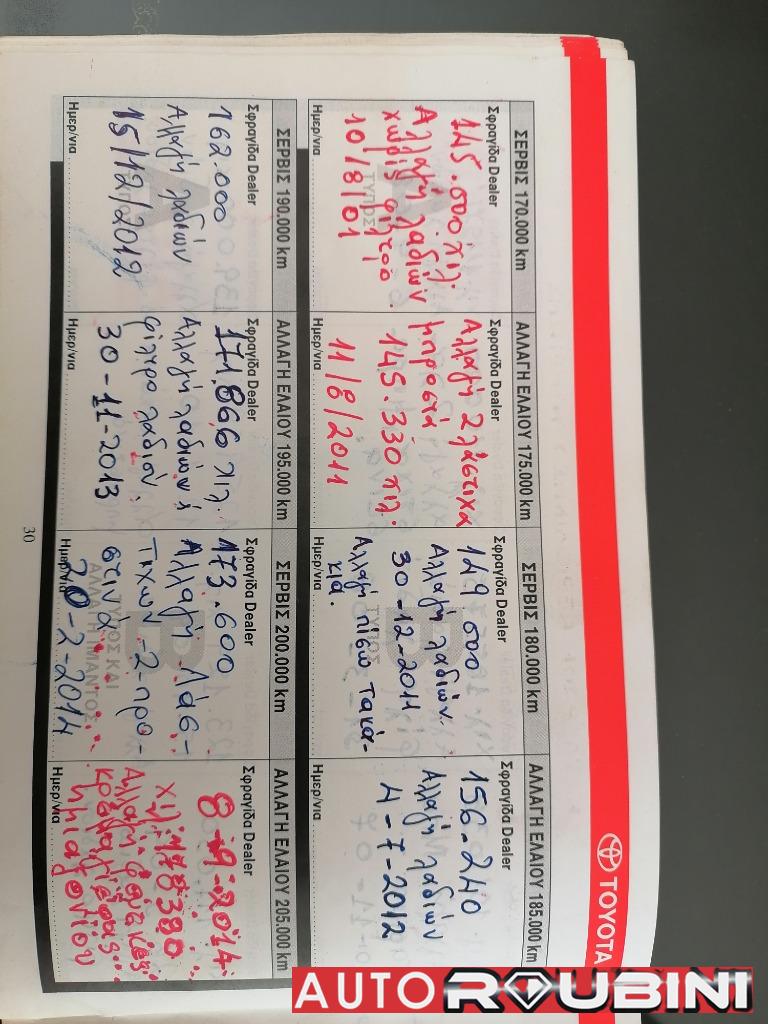 TOYOTA
ΣΕΡΒΙΣ 170.000 km
Σφραγίδα Dealer
145.000 χιλ.
Αλλαγή λαδιών
χωρίς φίλτρο.
10/8/01
Ημερ/νια
ΑΛΛΑΓΗ ΕΛΑΙΟΥ 175.000 km
Σφραγίδα Dealer
Αλλαγή 2 λάστιχα
μπροστά
145.330 χιλ.
11/8/2011
Ημερ/νια
ΣΕΡΒΙΣ 180.000 km
Σφραγίδα Dealer
149 500
Αλλαγή λαδιών.
30-12-2011
Αλλαγή πίσω τακά-
κια.
Ημερ/νια
ΑΛΛΑΓΗ ΕΛΑΙΟΥ 185.000 km
Σφραγίδα Dealer
156-240
Αλλαγή λαδιών
4-7-2012
Ημερ/νια
ΣΕΡΒΙΣ 190.000 km
Σφραγίδα Dealer
162.000
Αλλαγή λαδιών
15/12/2012
Ημερ/νια
ΑΛΛΑΓΗ ΕΛΑΙΟΥ 195.000 km
Σφραγίδα Dealer
171.866 χιλ.
Αλλαγή λαδιών
φίλτρο λαδιού.
30-11-2013
Ημερ/νια
ΣΕΡΒΙΣ 200.000 km
Σφραγίδα Dealer
173.600
Αλλαγή Λάσ-
τιχων -2- προ-
στινά
20-2-2014
Ημερ/νια
ΑΛΛΑΓΗ ΕΛΑΙΟΥ 205.000 km
Σφραγίδα Dealer
8-9-2014
χιλ. 178380
Αλλαγή
ημιαξονίου
Ημερ/νια
30
AUTOROUBINI